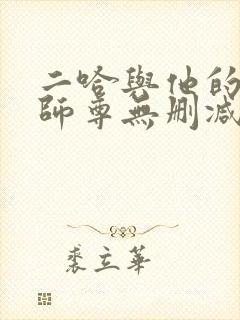 二哈與他的
師尊無刪減
裘立華